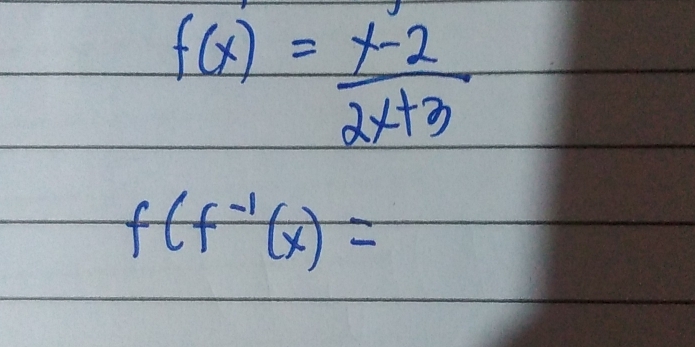 f(x) = x-2
2x+3
f(f⁻¹(x) =